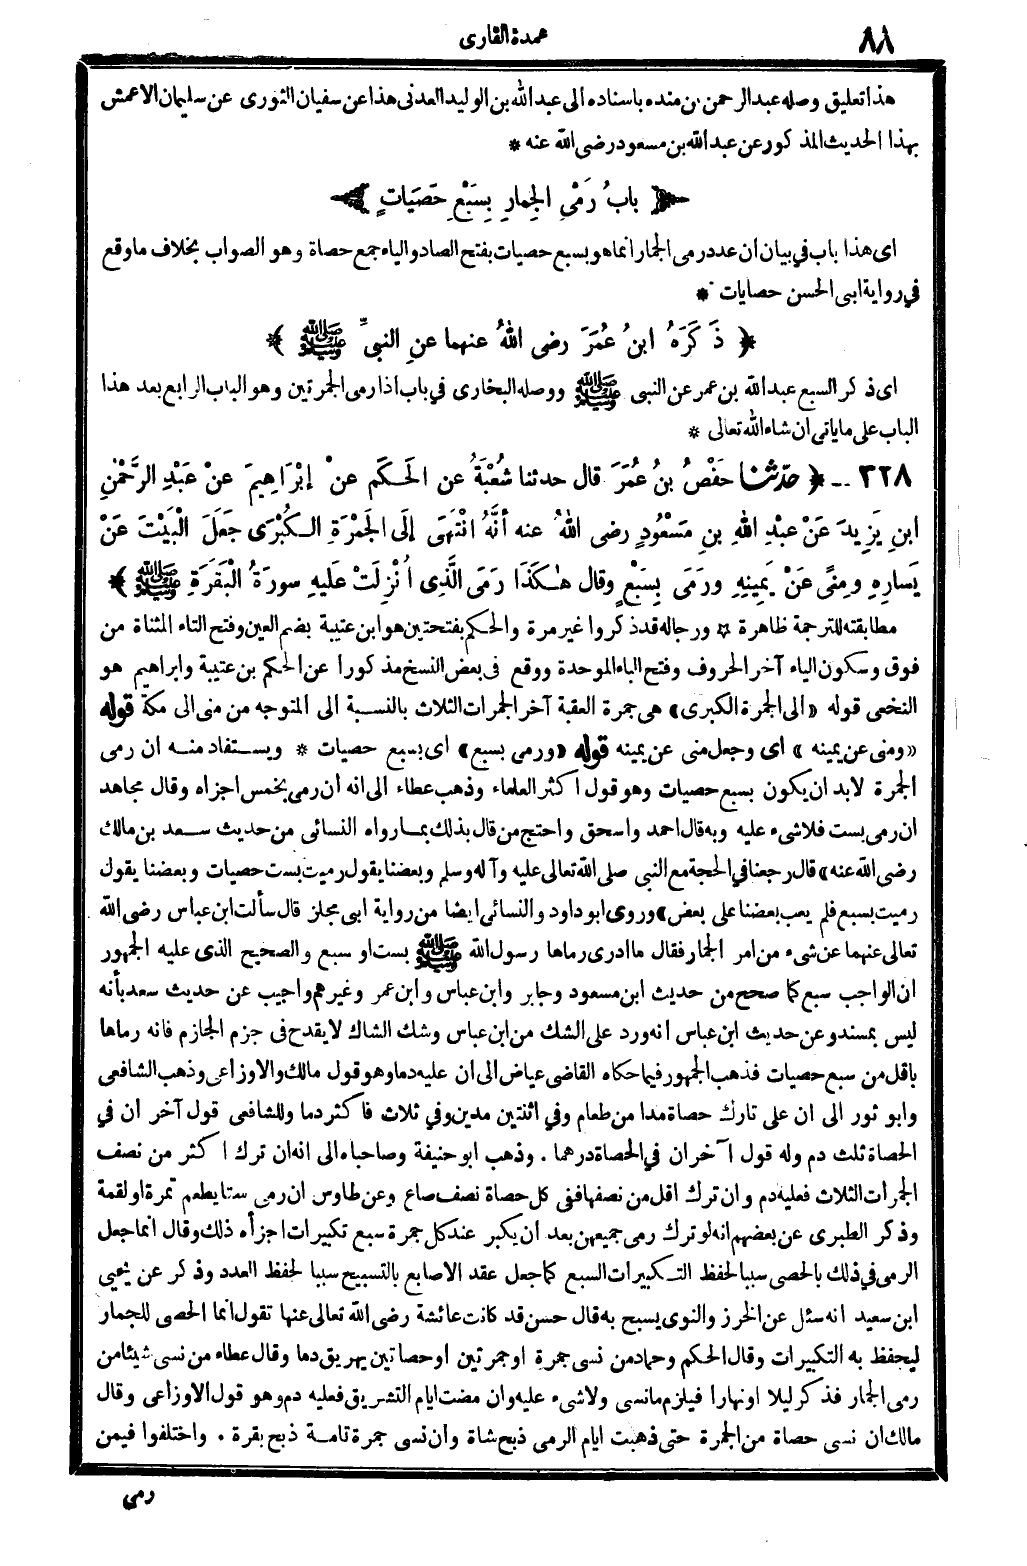 ٨٨
عمدة القارى
هذا تعليق وصله عبد الرحمن بن منده باسناده الى عبد الله بن الوليد العدنى هذا عن سفيان الثورى عن سليمان الاعمش
بهذا الحديث المذكور عن عبد الله بن مسعود رضى الله عنه *
﴿ بابُ رَمْىِ الجِمارِ بِسَبْعِ حَصَيَاتٍ ﴾
اى هذا باب فى بيان ان عدد رمى الجمار انما هو بسبع حصيات بفتح الصاد والياء جمع حصاة وهو الصواب بخلاف ما وقع
فى رواية ابى الحسن حصايات *
﴿ ذَكَرَهُ ابنُ عُمَرَ رضى اللهُ عنهما عنِ النبىِّ ﷺ ﴾
اى ذكر السبع عبد الله بن عمر عن النبى ﷺ ووصله البخارى فى باب اذا رمى الجمرتين وهو الباب الرابع بعد هذا
الباب على ما ياتى ان شاء الله تعالى *
٣٢٨ -- ﴿ حدّثنا حَفْصُ بنُ عُمَرَ قال حدثنا شُعْبَةُ عنِ الحَكَمِ عنْ إبْرَاهِيمَ عنْ عَبْدِ الرَّحْمٰنِ
ابنِ يَزِيدَ عَنْ عبْدِ اللهِ بنِ مَسْعُودٍ رضى اللهُ عنه أنَّهُ انْتَهَى إلَى الجَمْرَةِ الكُبْرَى جَعَلَ الْبَيْتَ عَنْ
يَسارِهِ ومِنًى عَنْ يَمِينِهِ ورَمَى بِسَبْعٍ وقال هٰكَذَا رَمَى الَّذِى اُنْزِلَتْ عَلَيهِ سورَةُ الْبَقَرَةِ ﷺ ﴾
مطابقته للترجمة ظاهرة * ورجاله قد ذكروا غير مرة والحكم بفتحتين هو ابن عتيبة بضم العين وفتح التاء المثناة من
فوق وسكون الياء آخر الحروف وفتح الباء الموحدة ووقع فى بعض النسخ مذكورا عن الحكم بن عتيبة وابراهيم هو
النخعى قوله «الى الجمرة الكبرى» هى جمرة العقبة آخر الجمرات الثلاث بالنسبة الى المتوجه من منى الى مكة قوله
«ومنى عن يمينه» اى وجعل منى عن يمينه قوله «ورمى بسبع» اى بسبع حصيات * ويستفاد منه ان رمى
الجمرة لابد ان يكون بسبع حصيات وهو قول اكثر العلماء وذهب عطاء الى انه ان رمى بخمس اجزاه وقال مجاهد
ان رمى بست فلا شىء عليه وبه قال احمد واسحق واحتج من قال بذلك بما رواه النسائى من حديث سعد بن مالك
رضى الله عنه» قال رجعنا فى الحجة مع النبى صلى الله تعالى عليه وآله وسلم وبعضنا يقول رميت بست حصيات وبعضنا يقول
رميت بسبع فلم يعب بعضنا على بعض» وروى ابو داود والنسائى ايضا من رواية ابى مجلز قال سألت ابن عباس رضى الله
تعالى عنهما عن شىء من امر الجمار فقال ما ادرى رماها رسول الله ﷺ بست او سبع والصحيح الذى عليه الجمهور
ان الواجب سبع كما صح من حديث ابن مسعود وجابر وابن عباس وابن عمر وغيرهم واجيب عن حديث سعد بأنه
ليس بمسند وعن حديث ابن عباس انه ورد على الشك من ابن عباس وشك الشاك لا يقدح فى جزم الجازم فانه رماها
باقل من سبع حصيات فذهب الجمهور فيما حكاه القاضى عياض الى ان عليه دما وهو قول مالك والاوزاعى وذهب الشافعى
وابو ثور الى ان على تارك حصاة مدا من طعام وفى اثنتين مدين وفى ثلاث فاكثر دما وللشافعى قول آخر ان فى
الحصاة ثلث دم وله قول آخر ان فى الحصاة درهما . وذهب ابو حنيفة وصاحباه الى انه ان ترك اكثر من نصف
الجمرات الثلاث فعليه دم وان ترك اقل من نصفها ففى كل حصاة نصف صاع وعن طاوس ان رمى ستا يطعم تمرة او لقمة
وذكر الطبرى عن بعضهم انه لو ترك رمى جميعهن بعد ان يكبر عند كل جمرة سبع تكبيرات اجزأه ذلك وقال انما جعل
الرمى فى ذلك بالحصى سببا لحفظ التكبيرات السبع كما جعل عقد الاصابع بالتسبيح سببا لحفظ العدد وذكر عن يحيى
ابن سعيد انه سئل عن الخرز والنوى يسبح به قال حسن قد كانت عائشة رضى الله تعالى عنها تقول انما الحصى للجمار
ليحفظ به التكبيرات وقال الحكم وحماد من نسى جمرة او جمرتين او حصاتين يهريق دما وقال عطاء من نسى شيئا من
رمى الجمار فذكر ليلا او نهارا فيلزم ما نسى ولا شىء عليه وان مضت ايام التشريق فعليه دم وهو قول الاوزاعى وقال
مالك ان نسى حصاة من الجمرة حتى ذهبت ايام الرمى ذبح شاة وان نسى جمرة تامة ذبح بقرة . واختلفوا فيمن
رمى